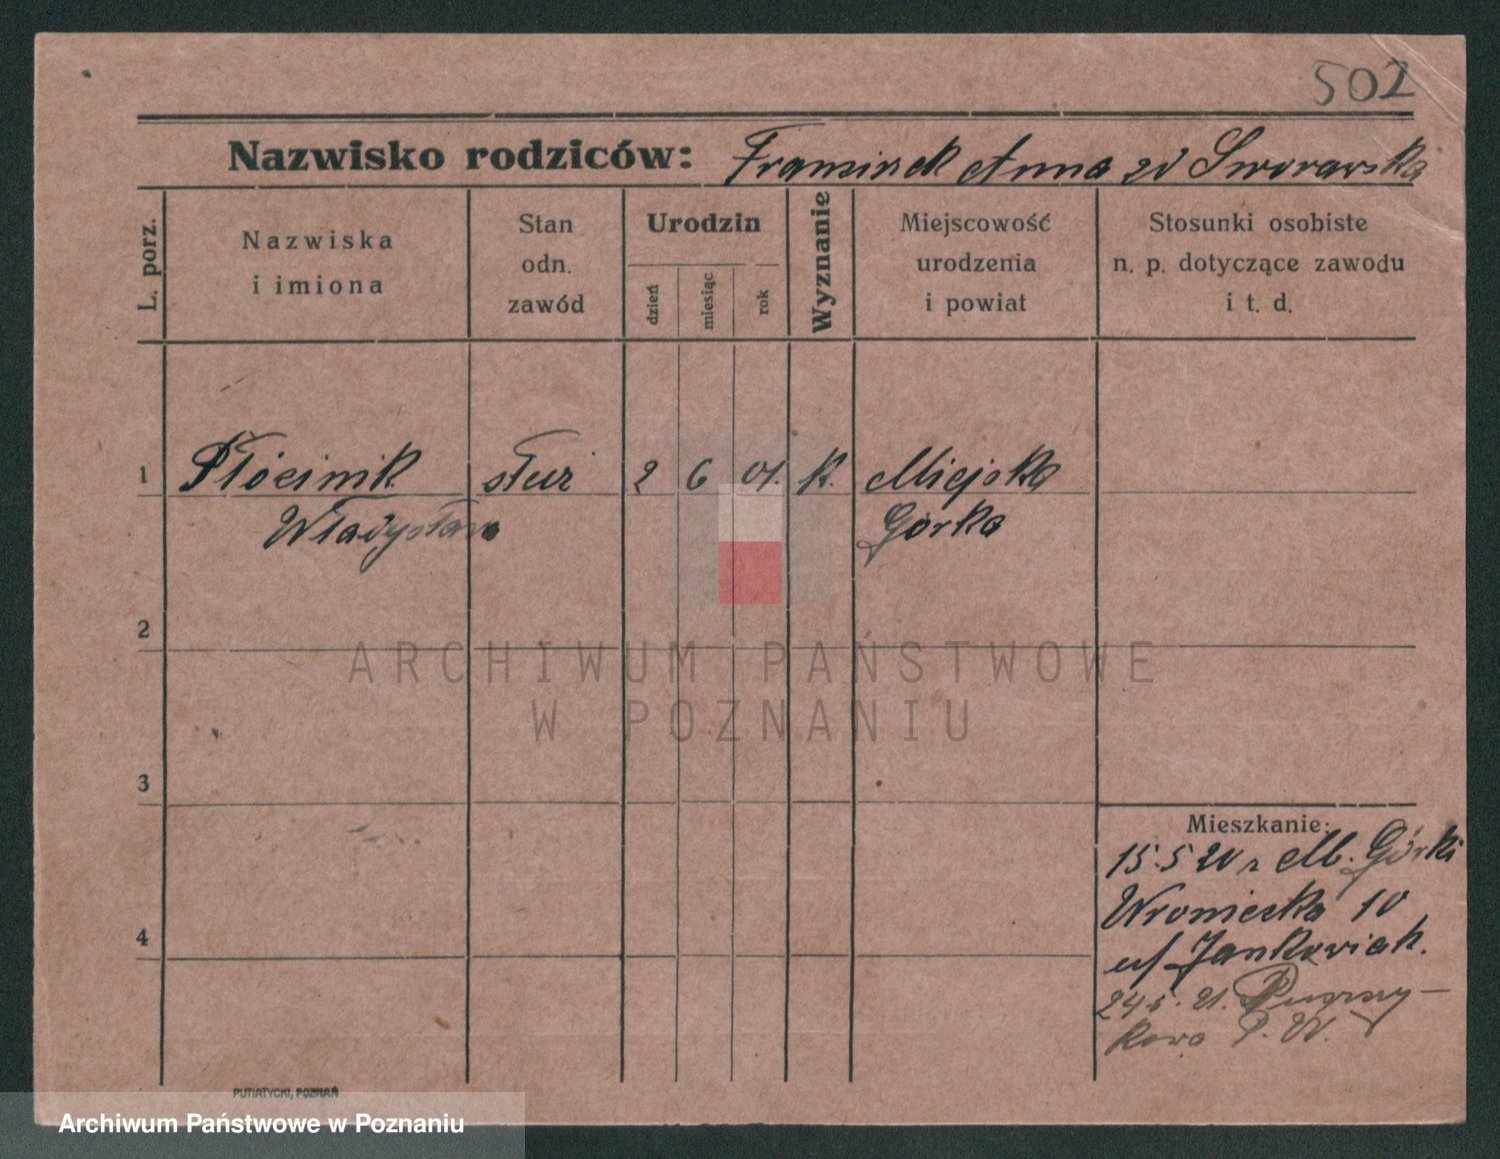 502
Nazwisko rodziców: Franciszek Anna zd Sworowska
L. porz.
Nazwiska
i imiona
Stan
odn.
zawód
Urodzin
dzień
miesiąc
rok
Wyznanie
Miejscowość
urodzenia
i powiat
Stosunki osobiste
n. p. dotyczące zawodu
i t. d.
1 Płócinik służ 2 6 01. k. Miejska
Władysława Górka
2
3
4
Mieszkanie:
15.5 20 z M. Górki
Wroniecka 10
u/ Jankowiak.
24 5. 21.
P. W.
PUTIATYCKI, POZNAŃ
ARCHIWUM PAŃSTWOWE
W POZNANIU
Archiwum Państwowe w Poznaniu